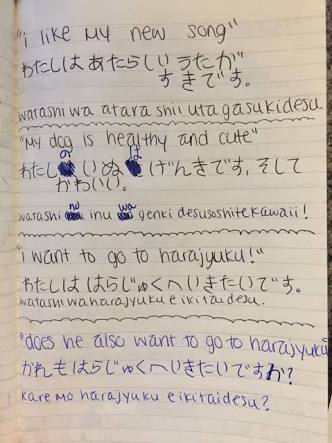 "i like my new song"
わたしは あたらしい うたが
すきです。
watashi wa atara shii uta gasukidesu.
"My dog is healthy and cute"
わたしの いぬ は げんきです, そして
かわいい。
watashi no inu wa genki desusoshitekawaii!
"i want to go to harajyuku!"
わたしは はらじゅくへいきたいです。
watashi waharajyuku e ikitaidesu.
"does he also want to go to harajyuku
かれも はらじゅくへいきたいですか?
kare mo harajyuku e ikitaidesu?